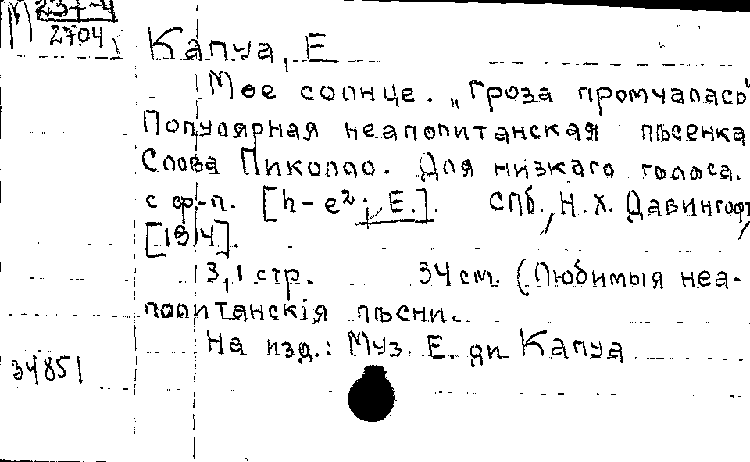 М 237-4
2704
Капуа, Е
Мое солнце. „Гроза промчалась"
Популярная неаполитанская пѣсенка
Слова Пиколло. Для низкаго голоса.
с фр.-п. [h-e²; E.]. СПб., Н.Х. Давингоф,
[1914].
3,1 стр. 34 см. (Любимыя неа-
политанскія пѣсни.
На изд.: Муз. Е. ди Капуа
34851